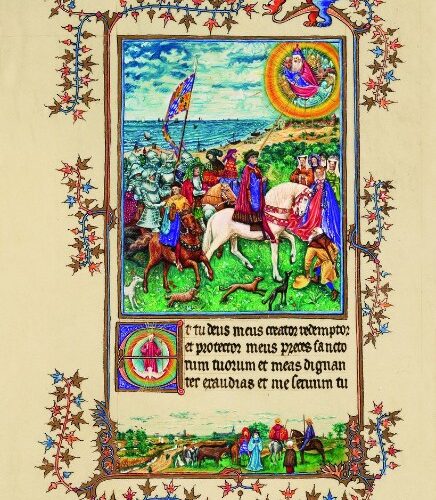 t tu deus meus creator redemptor
et protector meus preces sancto
rum tuorum et meas dignan
ter exaudias et me seruum tu